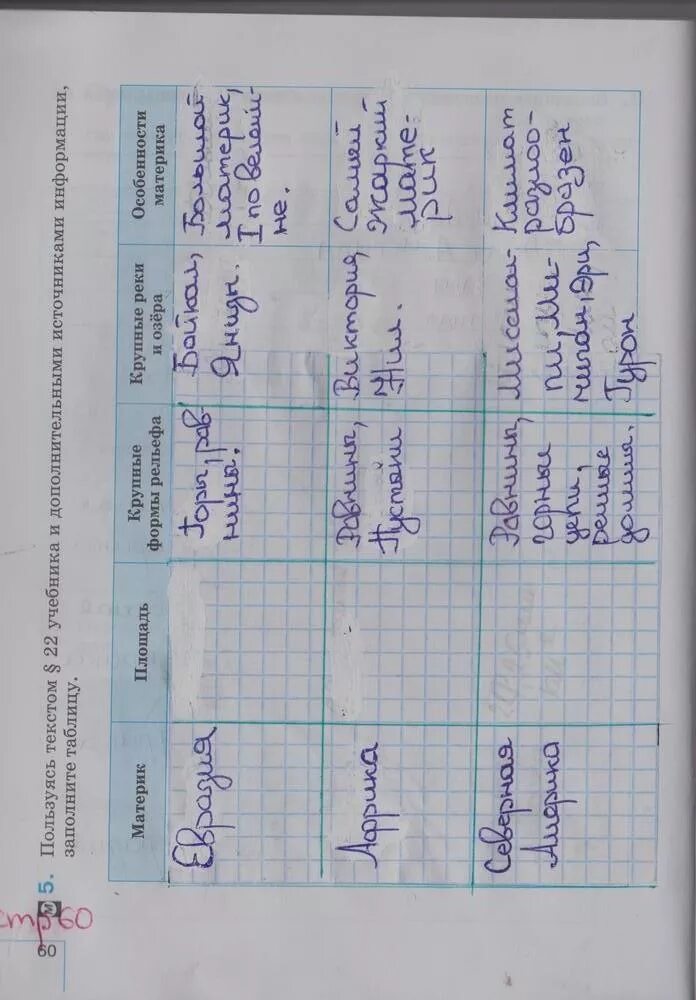 стр 60
60
м 5. Пользуясь текстом § 22 учебника и дополнительными источниками информации,
заполните таблицу.
Материк
Площадь
Крупные
формы рельефа
Крупные реки
и озёра
Особенности
материка
Евразия
Горы, рав-
нины.
Байкал,
Янцзы.
Большой
материк,
I по велич-
не.
Африка
Равнины,
Пустыни
Виктория,
Нил.
Самый
жаркий
мате-
рик
Северная
Америка
Равнины,
горные
цепи,
речные
долина.
Миссиси-
пи, Ми-
чиган, Эри,
Гурон
Климат
разноо-
бразен